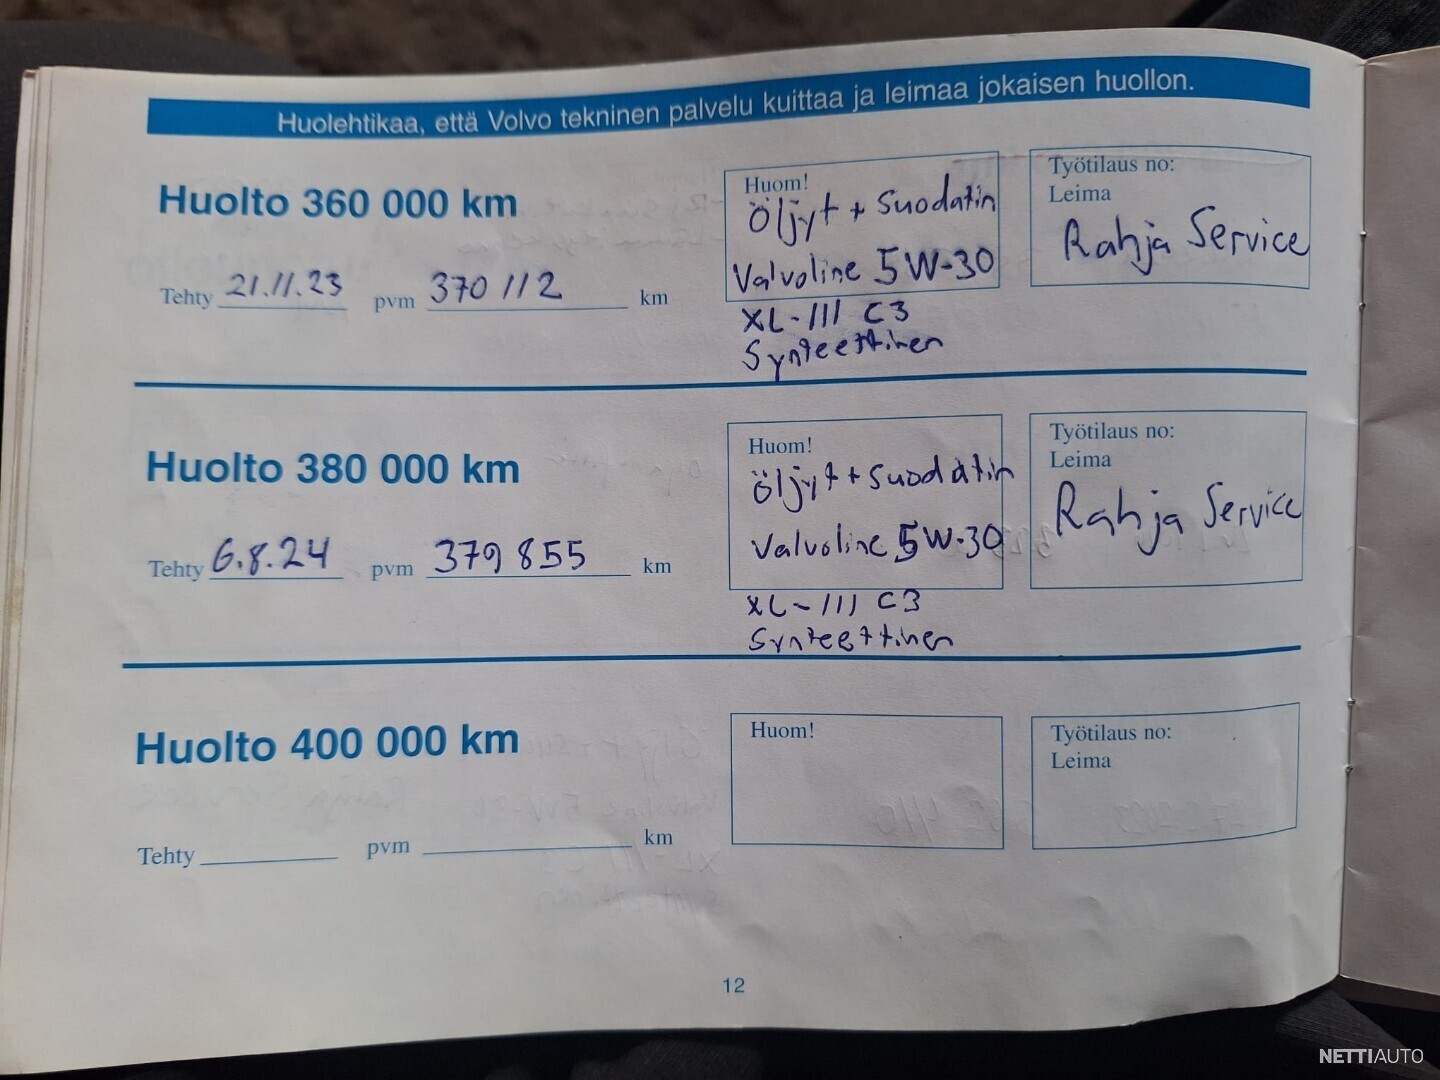 Huolehtikaa, että Volvo tekninen palvelu kuittaa ja leimaa jokaisen huollon.
Huolto 360 000 km
Tehty 21.11.23 pvm 370 112 km
Huom!
Öljyt + Suodatin
Valvoline 5W-30
XL-III C3
Synteettinen
Työtilaus no:
Leima
Rahja Service
Huolto 380 000 km
Tehty 6.8.24 pvm 379 855 km
Huom!
Öljyt + Suodatin
Valvoline 5W-30
XL-III C3
Synteettinen
Työtilaus no:
Leima
Rahja Service
Huolto 400 000 km
Tehty pvm km
Huom!
Työtilaus no:
Leima
12
NETTIAUTO